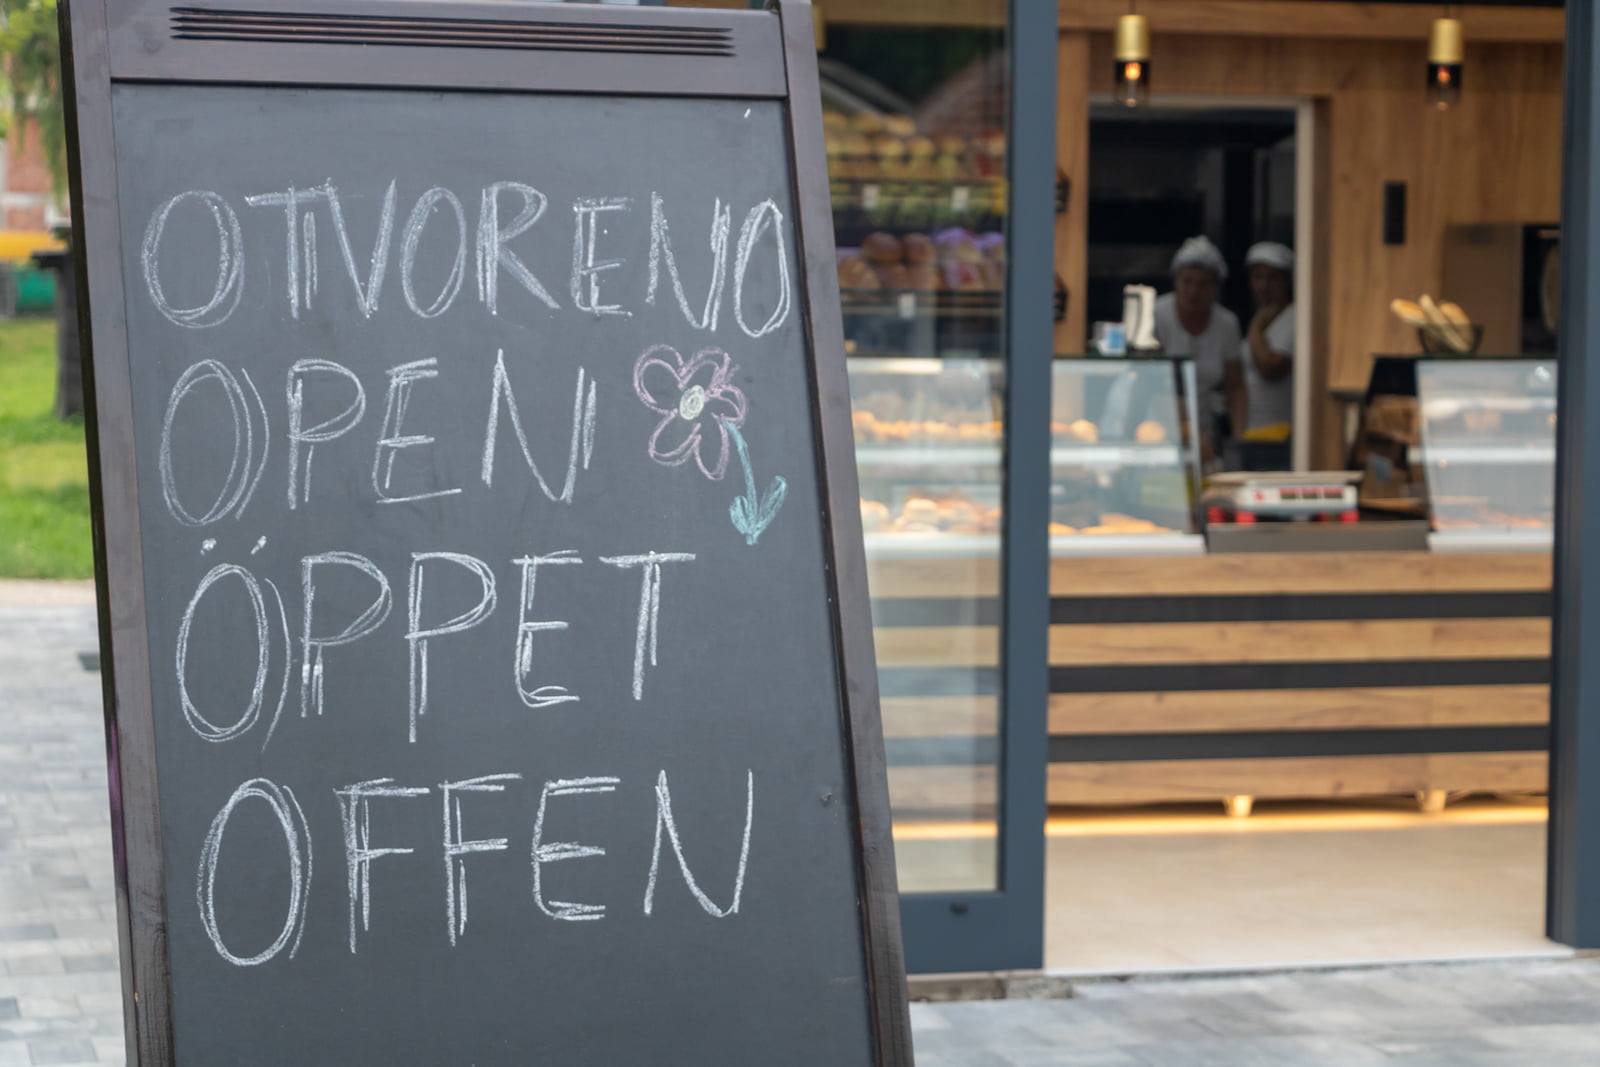 OTVORENO
OPEN
ÖPPET
OFFEN